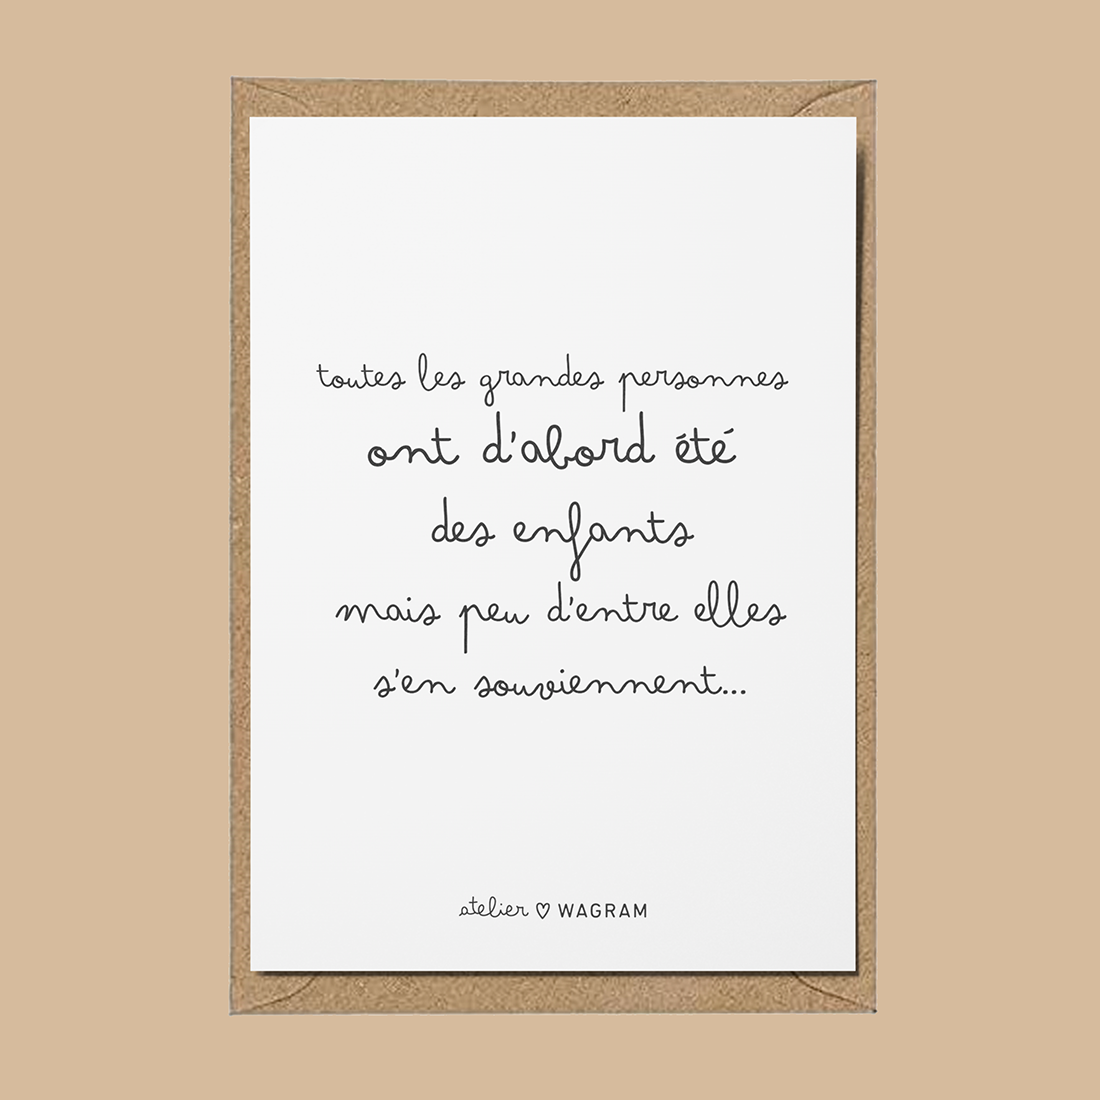 toutes les grandes personnes
ont d'abord été
des enfants
mais peu d'entre elles
s'en souviennent...
atelier ♡ WAGRAM